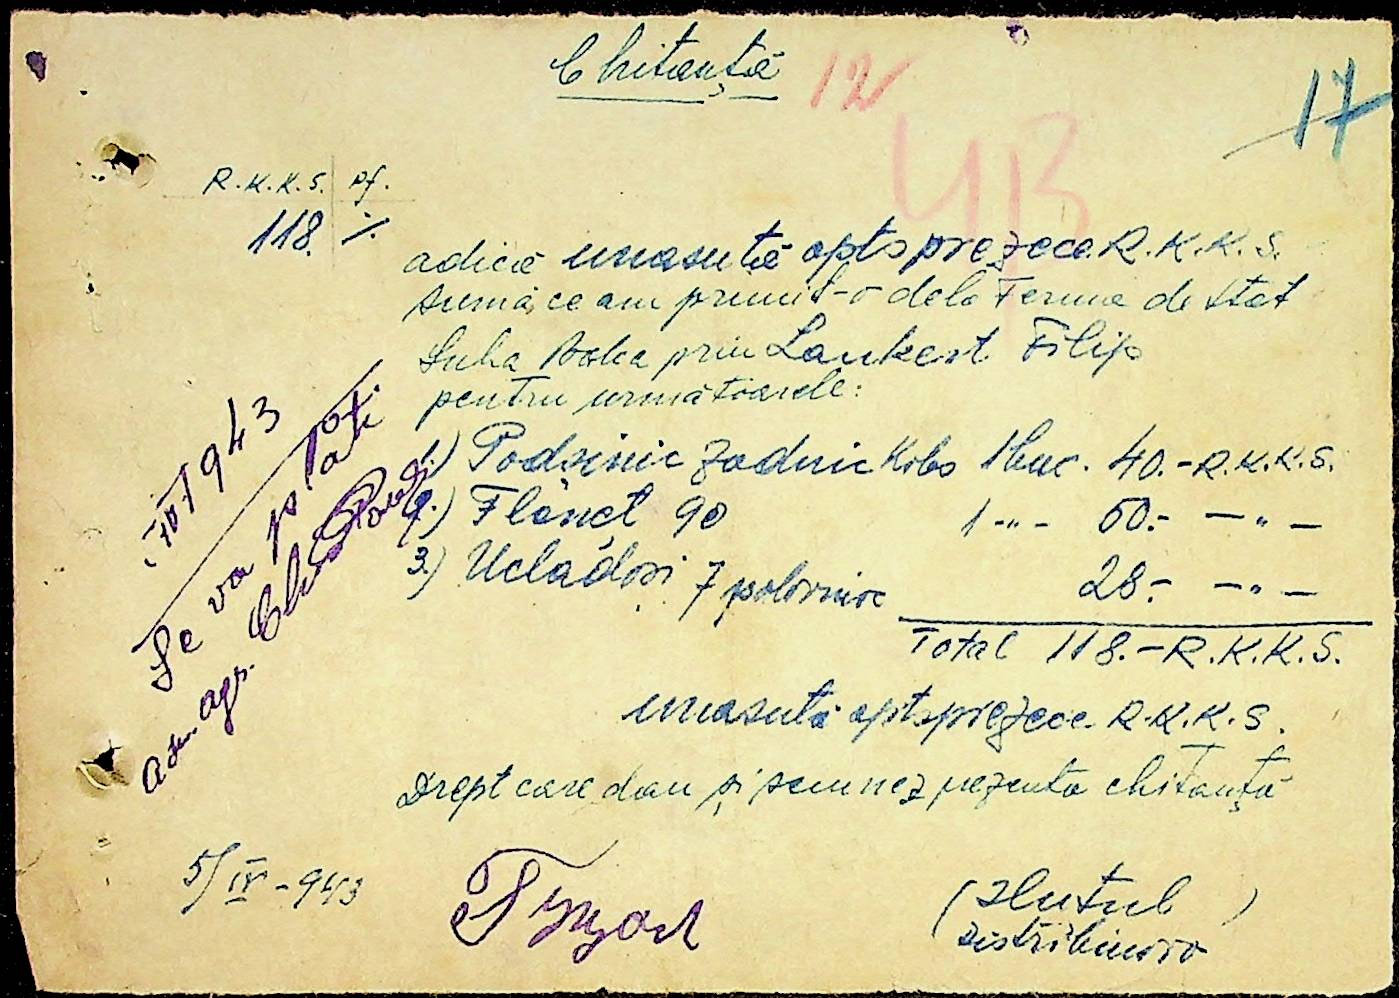 Chitanță
12
17
R.K.K.S. pf.
118. %
adică unasută optsprezece R.K.K.S.
suma ce am primit-o dela Ferma de Stat
Suha Balca prin Laukert Filip
pentru următoarele:
1.) Podsinic zadnic Kolos 1 buc. 40.- R.K.K.S.
2.) Flanct 90 1 -"- 50.- -"-
3.) Ucladori 7 polovnioc 28.- -"-
Total 118.- R.K.K.S.
unasută optsprezece R.K.K.S.
Drept care dau și semnez prezenta chitanță
5/IV-943
(Hutul)
1943
Se va plati
Adm. agr.